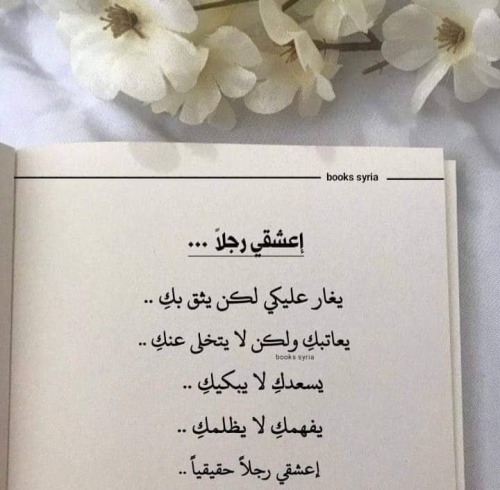 books syria
إعشقي رجلاً ...
يغار عليكي لكن يثق بكِ ..
يعاتبكِ ولكن لا يتخلى عنكِ ..
books syria
يسعدكِ لا يبكيكِ ..
يفهمكِ لا يظلمكِ ..
إعشقي رجلاً حقيقياً ..